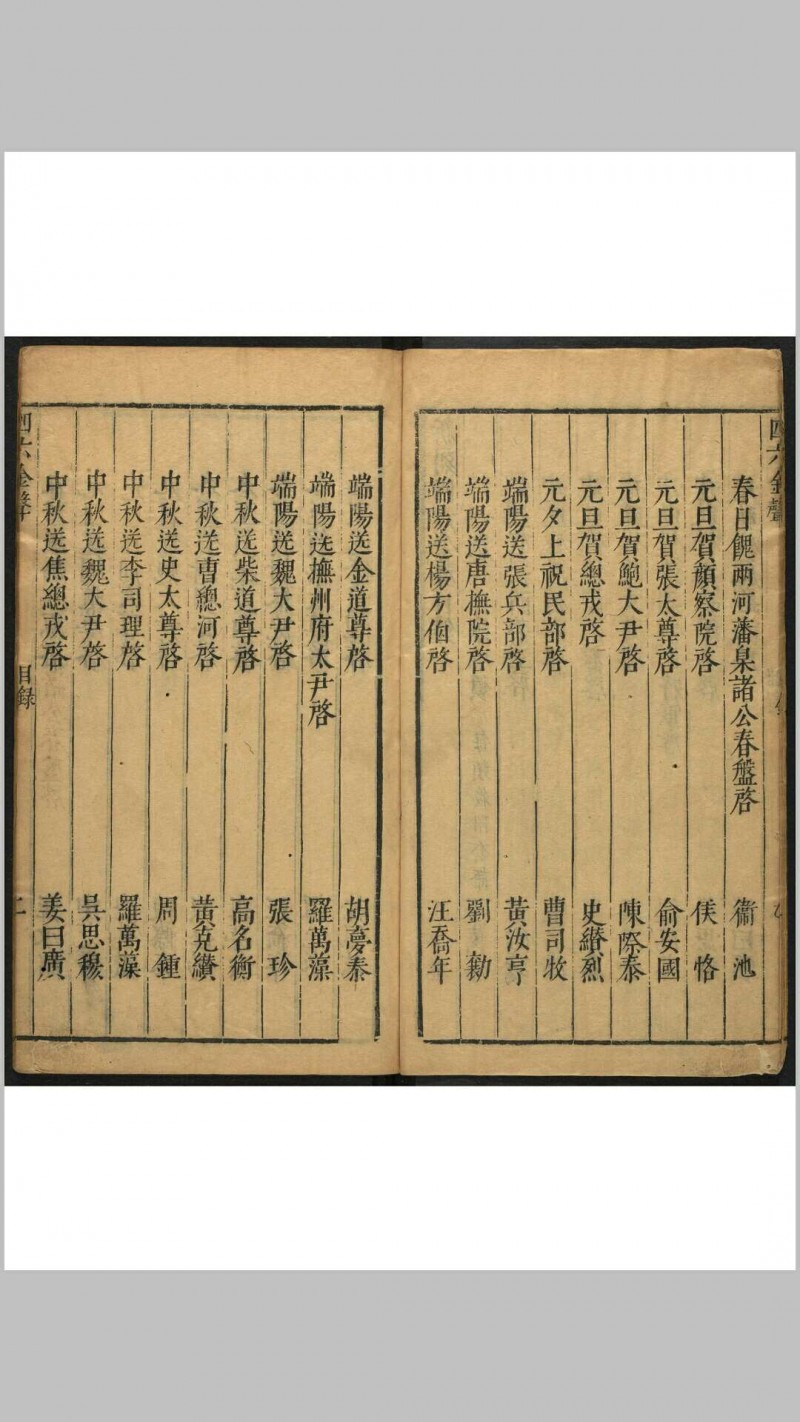 四六金聲
春日餽兩河藩臬諸公春盤啓 衞池
元旦賀顏察院啓 侯恪
元旦賀張太尊啓 俞安國
元旦賀鮑大尹啓 陳際泰
元旦賀總戎啓 史纘烈
元夕上祝民部啓 曹司牧
端陽送張兵部啓 黃汝亨
端陽送唐撫院啓 劉勑
端陽送楊方伯啓 汪喬年
端陽送金道尊啓 胡夢泰
端陽送撫州府太尹啓 羅萬藻
端陽送魏大尹啓 張珍
中秋送柴道尊啓 高名衡
中秋送曹總河啓 黃克纘
中秋送史太尊啓 周鍾
中秋送李司理啓 羅萬藻
中秋送魏大尹啓 吳思穆
中秋送焦總戎啓 姜曰廣
四六金聲 目録 二